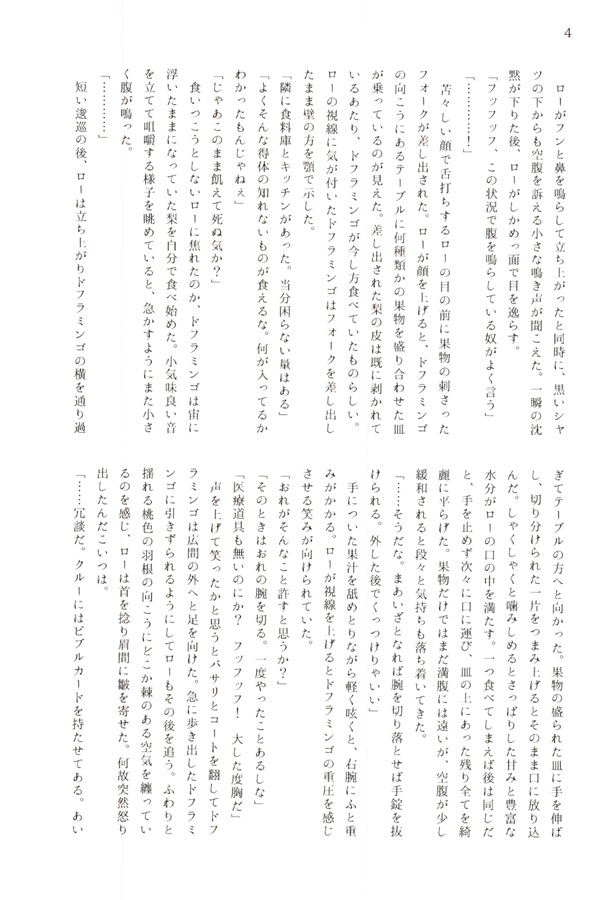 4
ローがフンと鼻を鳴らして立ち上がったと同時に、黒いシャ
ツの下からも空腹を訴える小さな鳴き声が聞こえた。一瞬の沈
黙が下りた後、ローがしかめっ面で目を逸らす。
「フッフッフ、この状況で腹を鳴らしている奴がよく言う」
「…………！」
苦々しい顔で舌打ちするローの目の前に果物の刺さった
フォークが差し出された。ローが顔を上げると、ドフラミンゴ
の向こうにあるテーブルに何種類かの果物を盛り合わせた皿
が乗っているのが見えた。差し出された梨の皮は既に剥かれて
いるあたり、ドフラミンゴが今し方食べていたものらしい。
ローの視線に気が付いたドフラミンゴはフォークを差し出し
たまま壁の方を顎で示した。
「隣に食料庫とキッチンがあった。当分困らない量はある」
「よくそんな得体の知れないものが食えるな。何が入ってるか
わかったもんじゃねぇ」
「じゃあこのまま飢えて死ぬ気か？」
食いつこうとしないローに焦れたのか、ドフラミンゴは宙に
浮いたままになっていた梨を自分で食べ始めた。小気味良い音
を立てて咀嚼する様子を眺めていると、急かすようにまた小さ
く腹が鳴った。
「…………」
短い逡巡の後、ローは立ち上がりドフラミンゴの横を通り過
ぎてテーブルの方へと向かった。果物の盛られた皿に手を伸ば
し、切り分けられた一片をつまみ上げるとそのまま口に放り込
んだ。しゃくしゃくと噛みしめるとさっぱりした甘みと豊富な
水分がローの口の中を満たす。一つ食べてしまえば後は同じだ
と、手を止めず次々に口に運び、皿の上にあった残り全てを綺
麗に平らげた。果物だけではまだ満腹には遠いが、空腹が少し
緩和されると段々と気持ちも落ち着いてきた。
「……そうだな。まあいざとなれば腕を切り落とせば手錠を抜
けられる。外した後でくっつけりゃいい」
手についた果汁を舐めとりながら軽く呟くと、右腕にふと重
みがかかる。ローが視線を上げるとドフラミンゴの重圧を感じ
させる笑みが向けられていた。
「おれがそんなこと許すと思うか？」
「そのときはおれの腕を切る。一度やったことあるしな」
「医療道具も無いのにか？　フッフッフ！　大した度胸だ」
声を上げて笑ったかと思うとバサリとコートを翻してドフ
ラミンゴは広間の外へと足を向けた。急に歩き出したドフラミ
ンゴに引きずられるようにしてローもその後を追う。ふわりと
揺れる桃色の羽根の向こうにどこか棘のある空気を纏ってい
るのを感じ、ローは首を捻り眉間に皺を寄せた。何故突然怒り
出したんだこいつは。
「……冗談だ。クルーにはビブルカードを持たせてある。あい